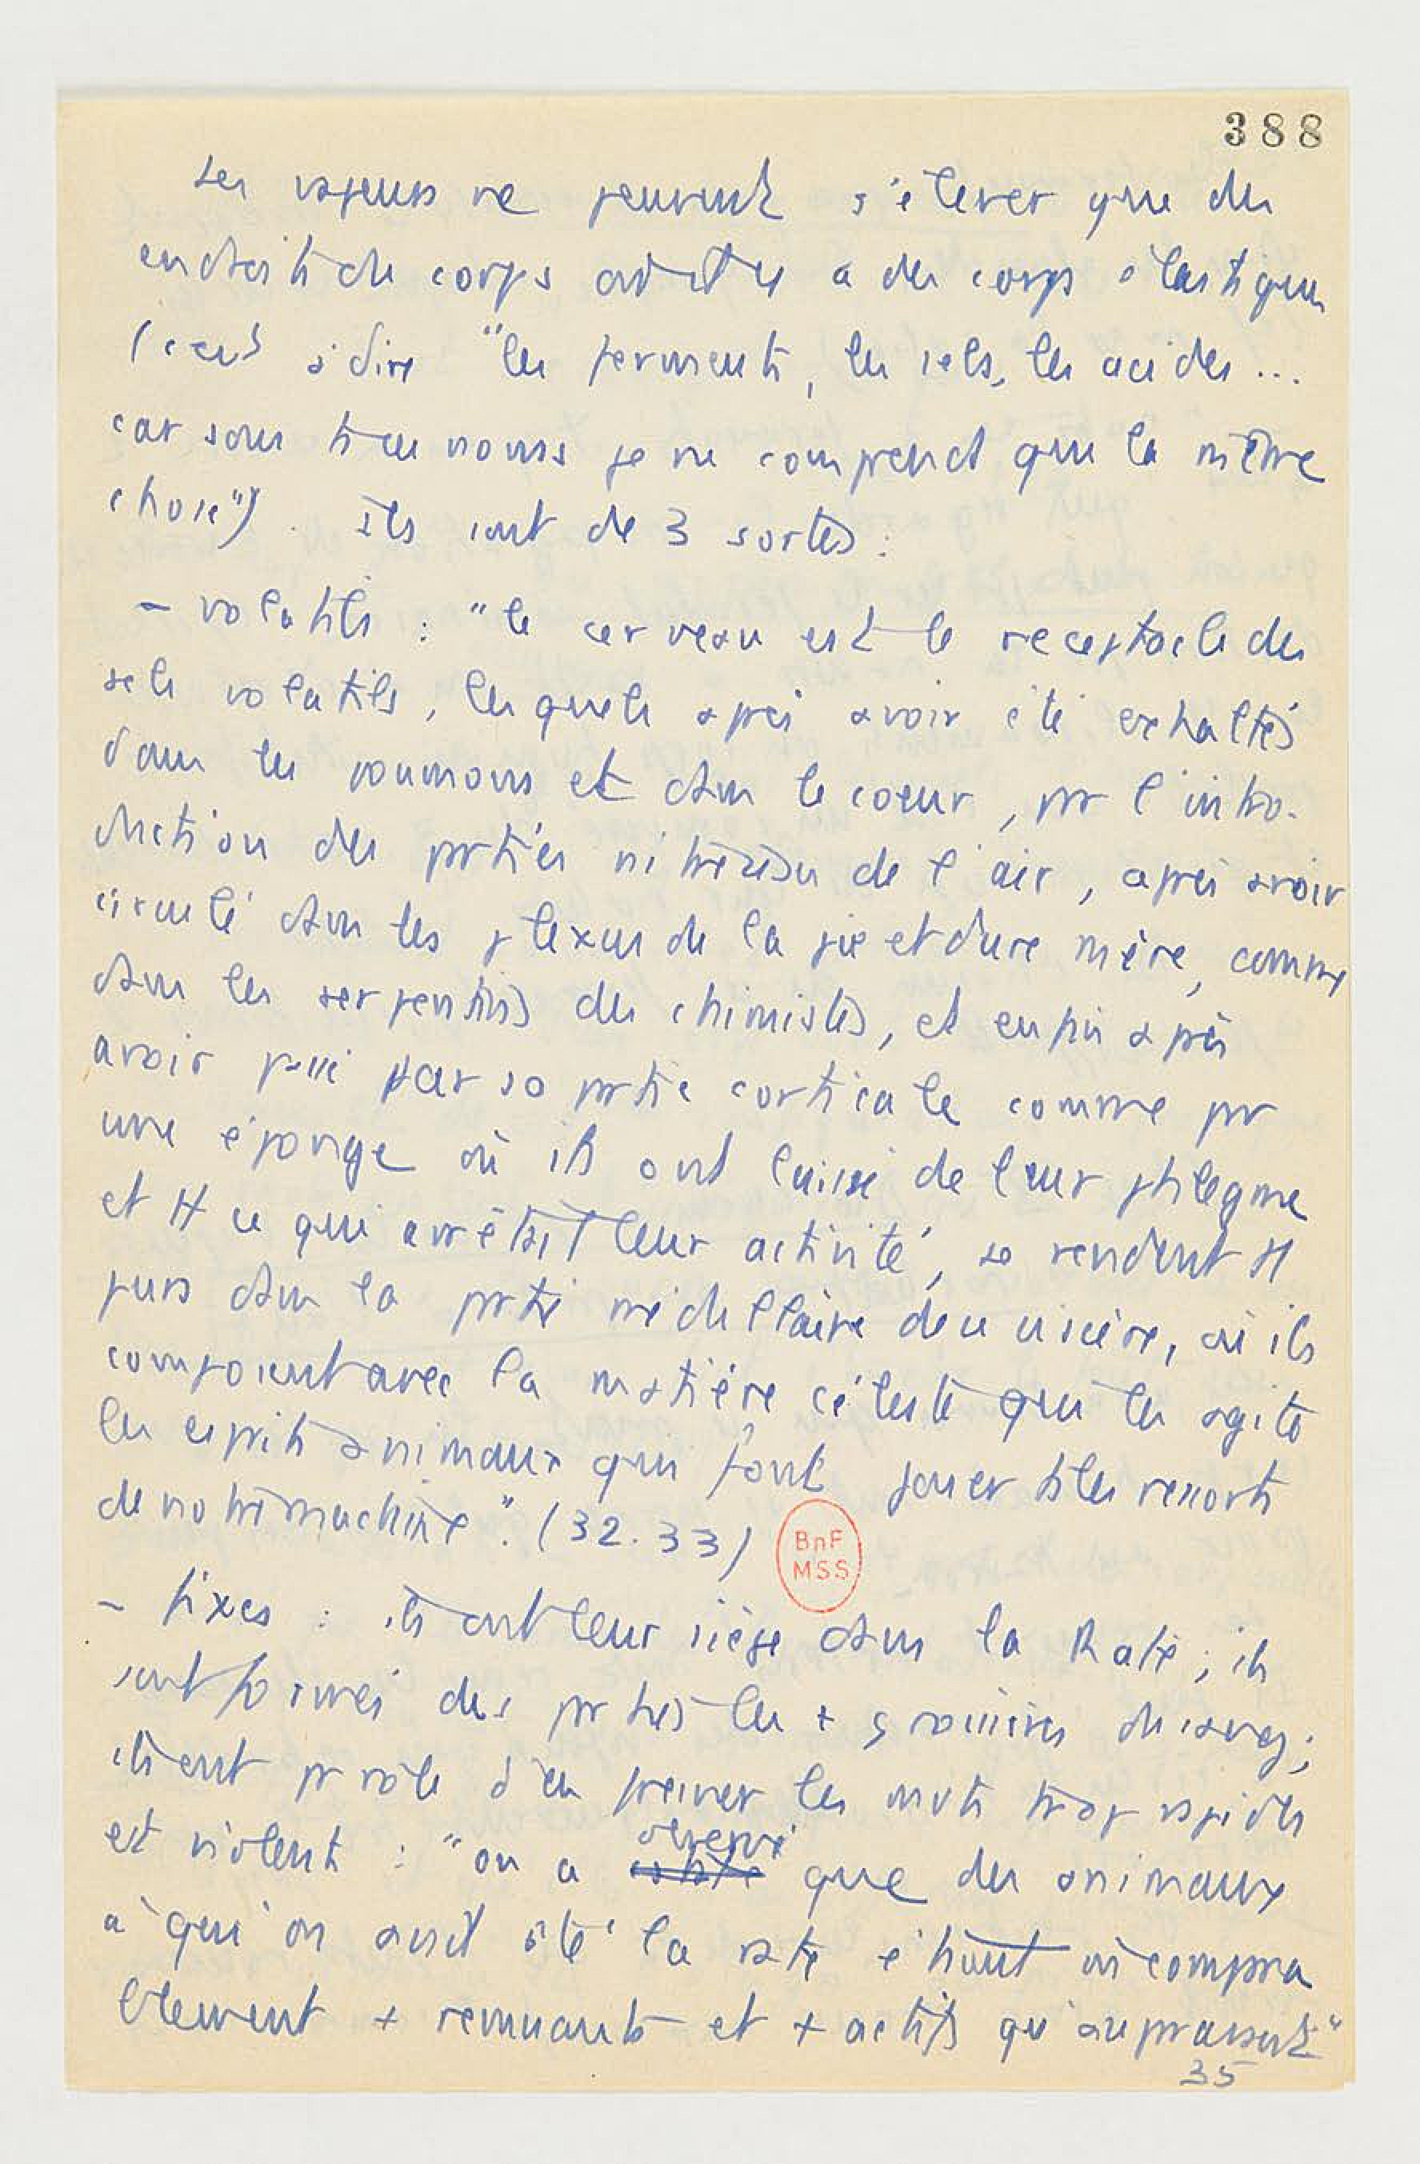 388
Les vapeurs ne peuvent s'élever que des
endroits du corps où il y a des corps élastiques
(c'est à dire "les ferments, les sels, les acides...
car sous tt ces noms je ne comprend que la même
chose"). Ils sont de 3 sortes :
- volatils : "le cerveau est le receptacle des
sels volatils, lesquels après avoir été exhaltés
dans les poumons et dans le cœur, pr l'intro-
duction des prties nitreuses de l'air, après avoir
circulé dans les plexus de la pie et dure mère, comme
dans les serpentins des chimistes, et enfin après
avoir passé par sa prtie corticale comme pr
une éponge où ils ont laissé de leur phlegme
et tt ce qui arrêtait leur activité, se rendent tt
purs dans la prtie médullaire de ce viscère, où ils
composent avec la matière céleste qui les agite
les esprits animaux qui font jouer ts les ressorts
de notre machine". (32.33)
BnF
MSS
- fixes : ils ont leur siège dans la Rate ; ils
sont formés des prties les + grossières du sang ;
ils ont pr rôle d'en freiner les mvts trop rapides
et violents : "on a observé que des animaux
à qui on avait ôté la rate étaient incompara
blement + remuants et + actifs qu'auparavant"
35